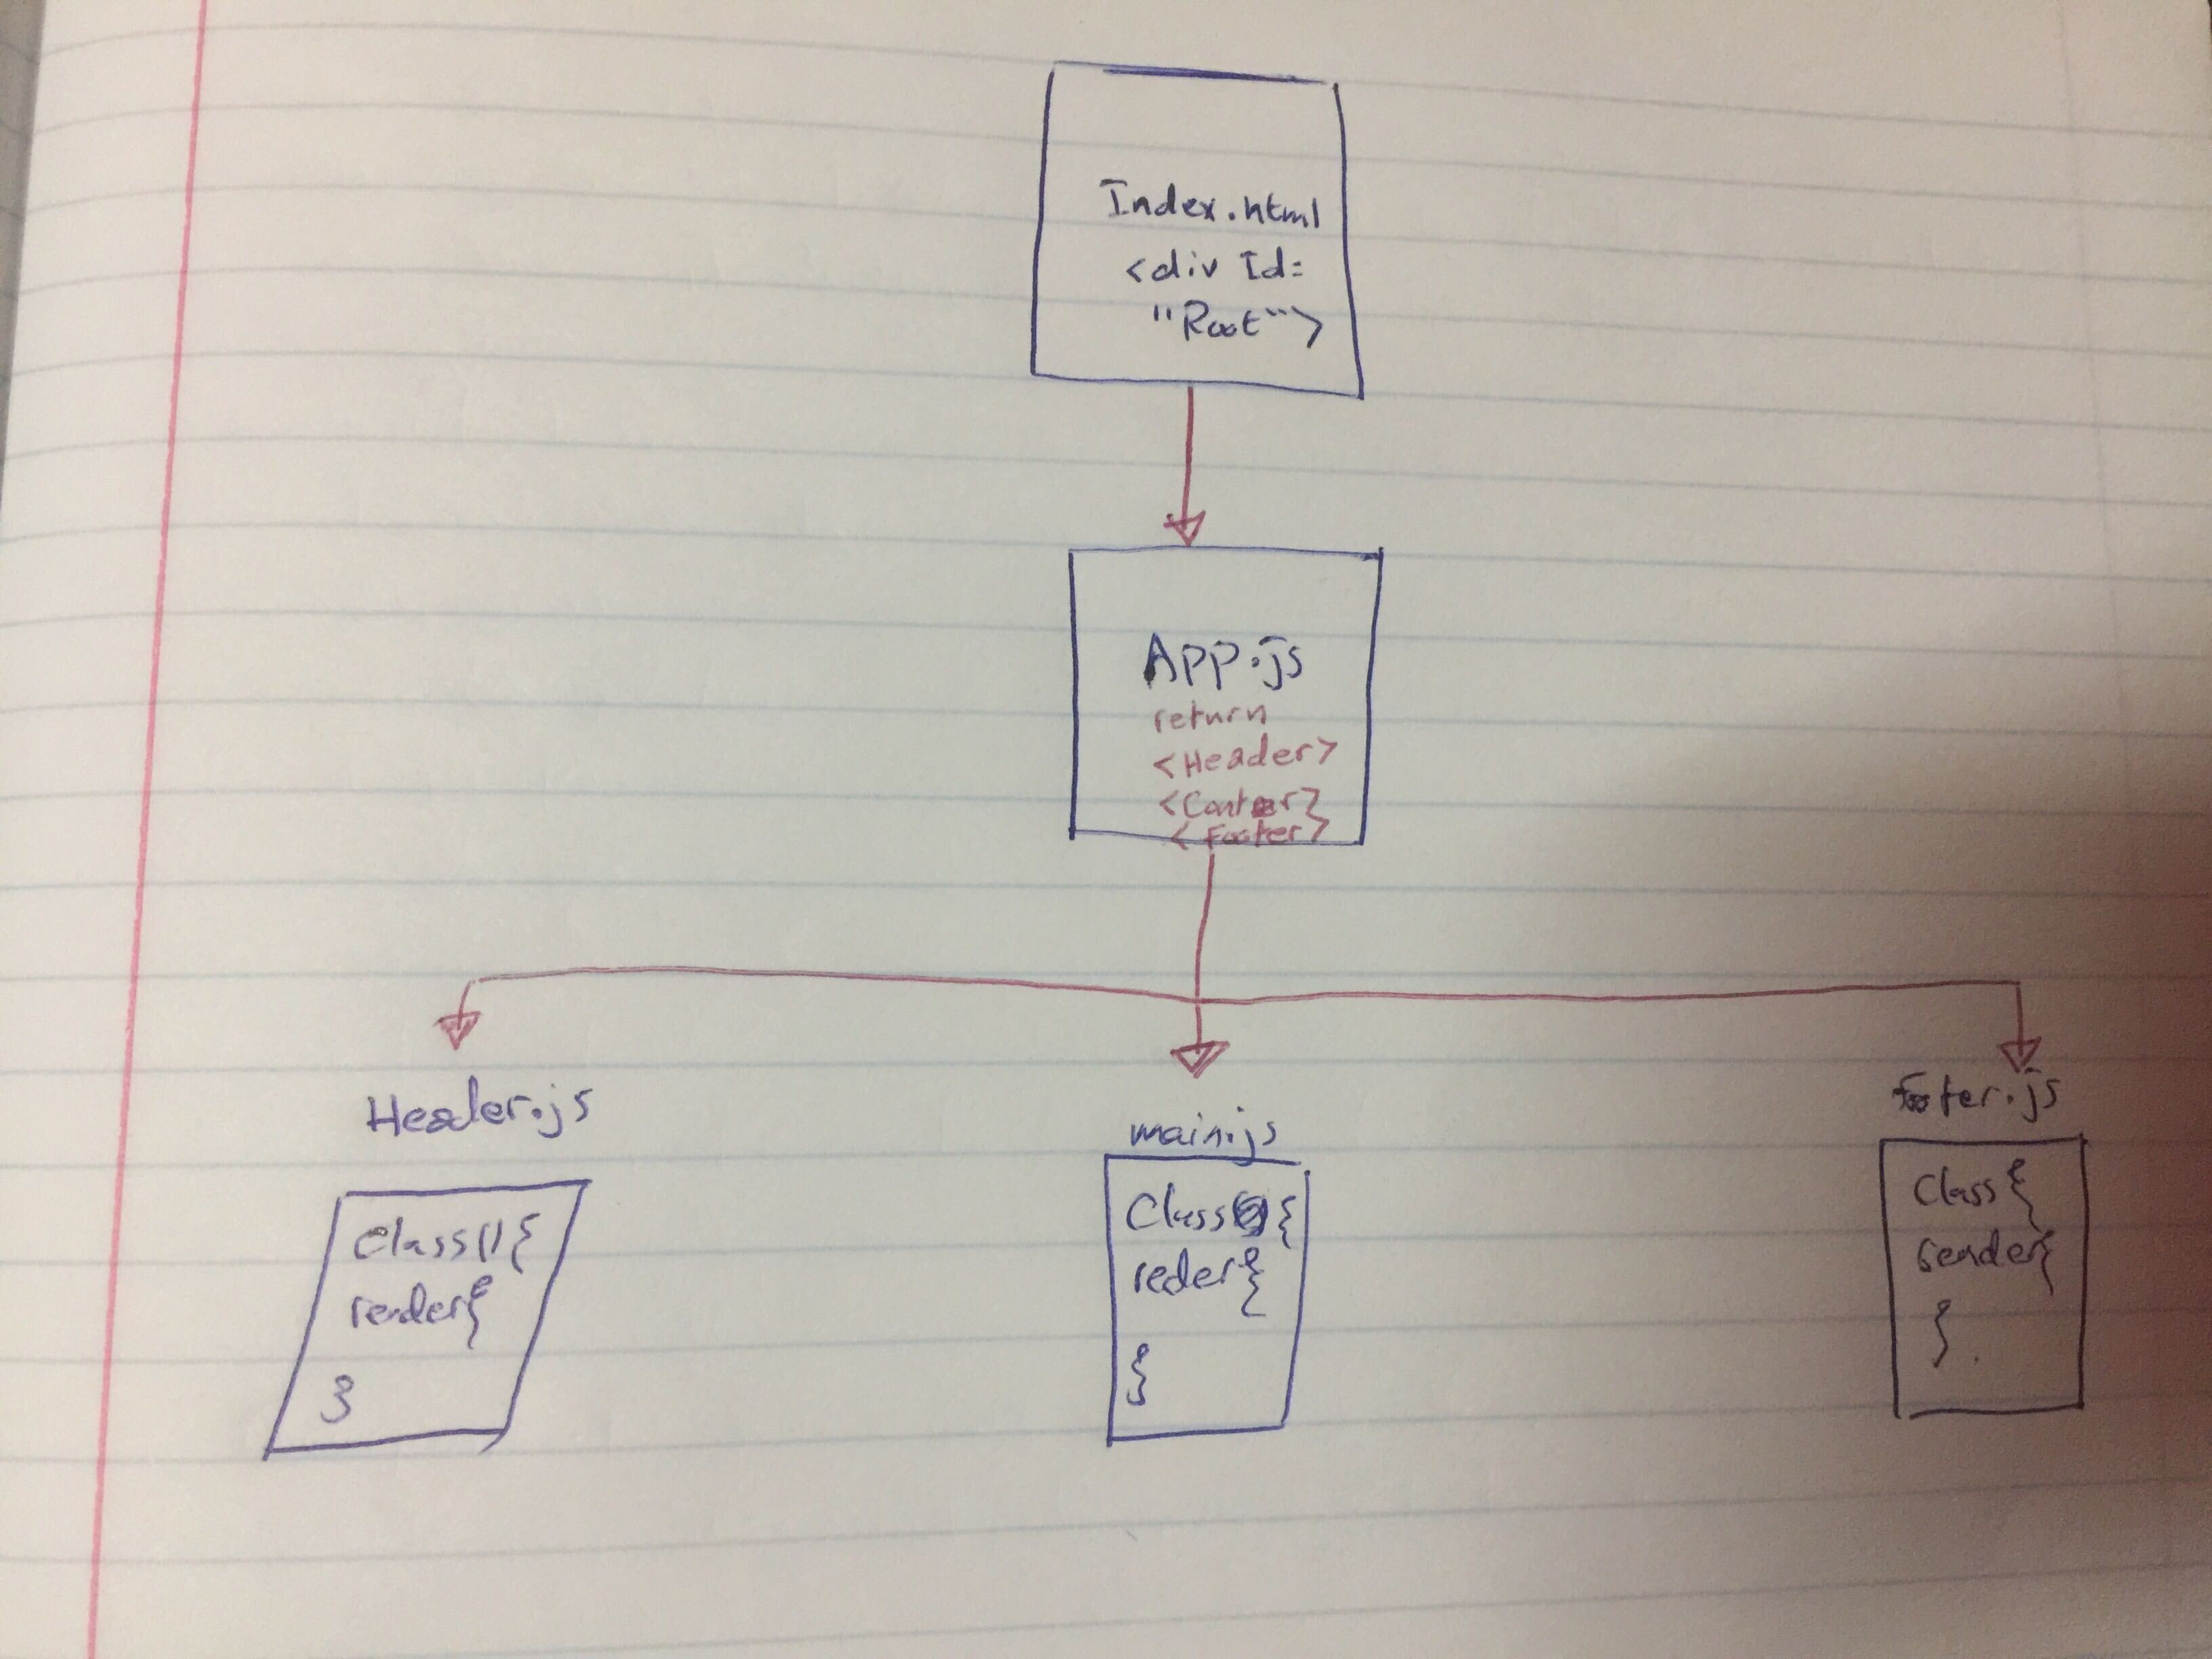 Index.html
<div Id=
"Root">
App.js
return
<Header>
<Conter>
<Footer>
Header.js
Class(){
render{
}
main.js
Class {
reder{
}
footer.js
Class {
render{
}